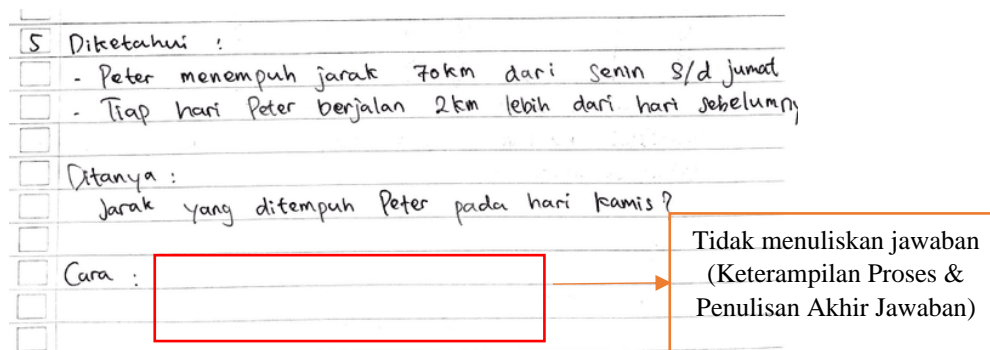 5 Diketahui :
- Peter menempuh jarak 70km dari Senin s/d jumat
- Tiap hari Peter berjalan 2km lebih dari hari sebelumny
Ditanya :
Jarak yang ditempuh Peter pada hari kamis?
Cara :
Tidak menuliskan jawaban
(Keterampilan Proses &
Penulisan Akhir Jawaban)